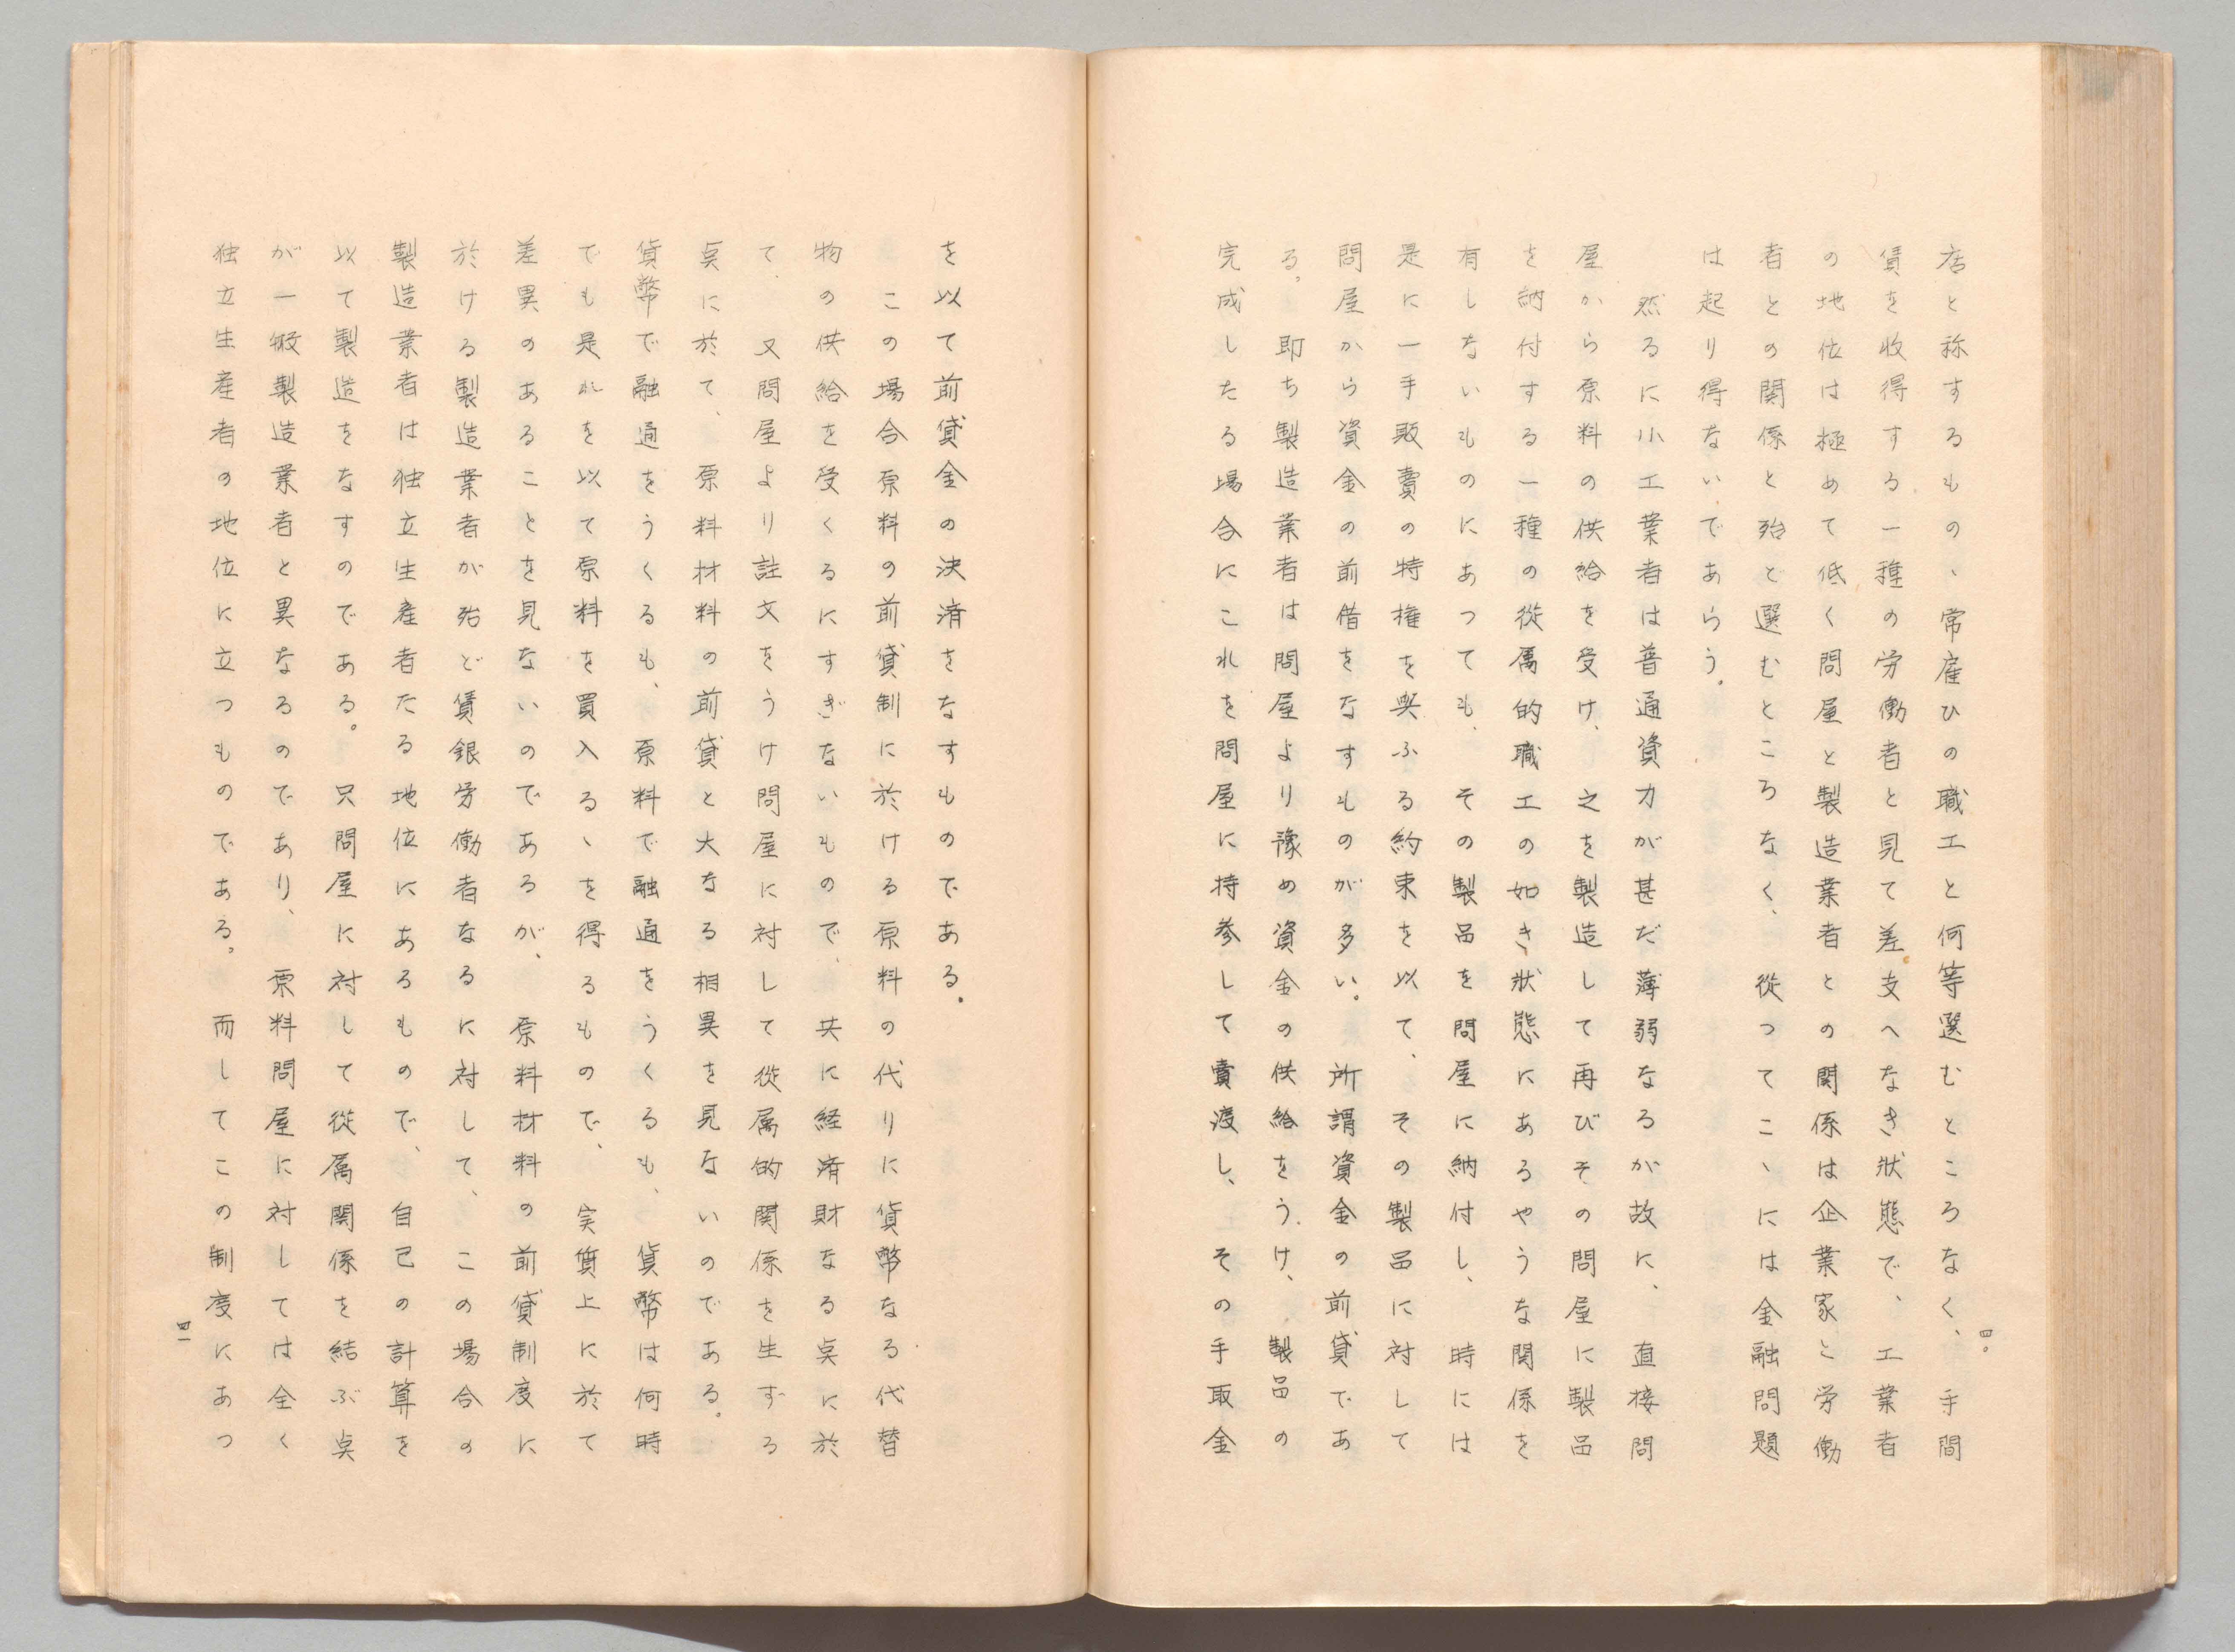 店と称するもの、常雇ひの職工と何等選むところなく、手間
賃を收得する一種の労働者と見て差支へなき狀態で、工業者
の地位は極めて低く問屋と製造業者との関係は企業家と労働
者との関係と殆と選むところなく、從つてこゝには金融問題
は起り得ないであらう。
然るに小工業者は普通資力が甚だ薄弱なるが故に、直接問
屋から原料の供給を受け、之を製造して再びその問屋に製品
を納付する一種の從属的職工の如き狀態にあるやうな関係を
有しないものにあつても、その製品を問屋に納付し、時には
是に一手販賣の特権を與ふる約束を以て、その製品に対して
問屋から資金の前借をなすものが多い。所謂資金の前貸であ
る。即ち製造業者は問屋より豫め資金の供給をうけ、製品の
完成したる場合にこれを問屋に持参して賣渡し、その手取金
四〇
を以て前貸金の決済をなすものである。
この場合原料の前貸制に於ける原料の代りに貨幣なる代替
物の供給を受くるにすぎないもので、共に経済財なる奌に於
て、又問屋より註文をうけ問屋に対して從属的関係を生ずる
奌に於て、原料材料の前貸と大なる相異を見ないのである。
貨幣で融通をうくるも、原料で融通をうくるも、貨幣は何時
でも是れを以て原料を買入るゝを得るもので、実質上に於て
差異のあることを見ないのであるが、原料材料の前貸制度に
於ける製造業者が殆ど賃銀労働者なるに対して、この場合の
製造業者は独立生産者たる地位にあるもので、自己の計算を
以て製造をなすのである。只問屋に対して從属関係を結ぶ奌
が一般製造業者と異なるのであり、原料問屋に対しては全く
独立生産者の地位に立つものである。而してこの制度にあつ
四一